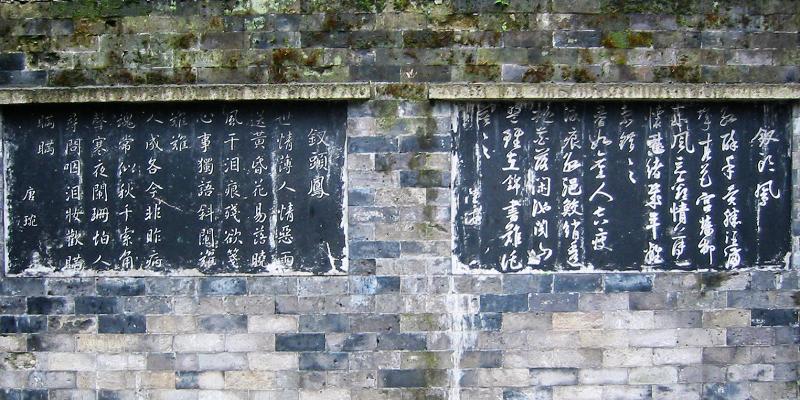 釵頭鳳
紅酥手黃縢酒滿
城春色宮牆柳
東風惡歡情薄一
懷愁緒幾年離
索錯〻〻
春如舊人空瘦
淚痕紅浥鮫綃透
桃花落閑池閣山
盟雖在錦書難託
莫〻〻
陸游
釵頭鳳
世情薄人情惡雨
送黃昏花易落曉
風干泪痕殘欲箋
心事獨語斜闌難
難難
人成各今非昨病
魂常似秋千索角
聲寒夜闌珊怕人
尋問咽泪妝歡瞞
瞞瞞
唐琬